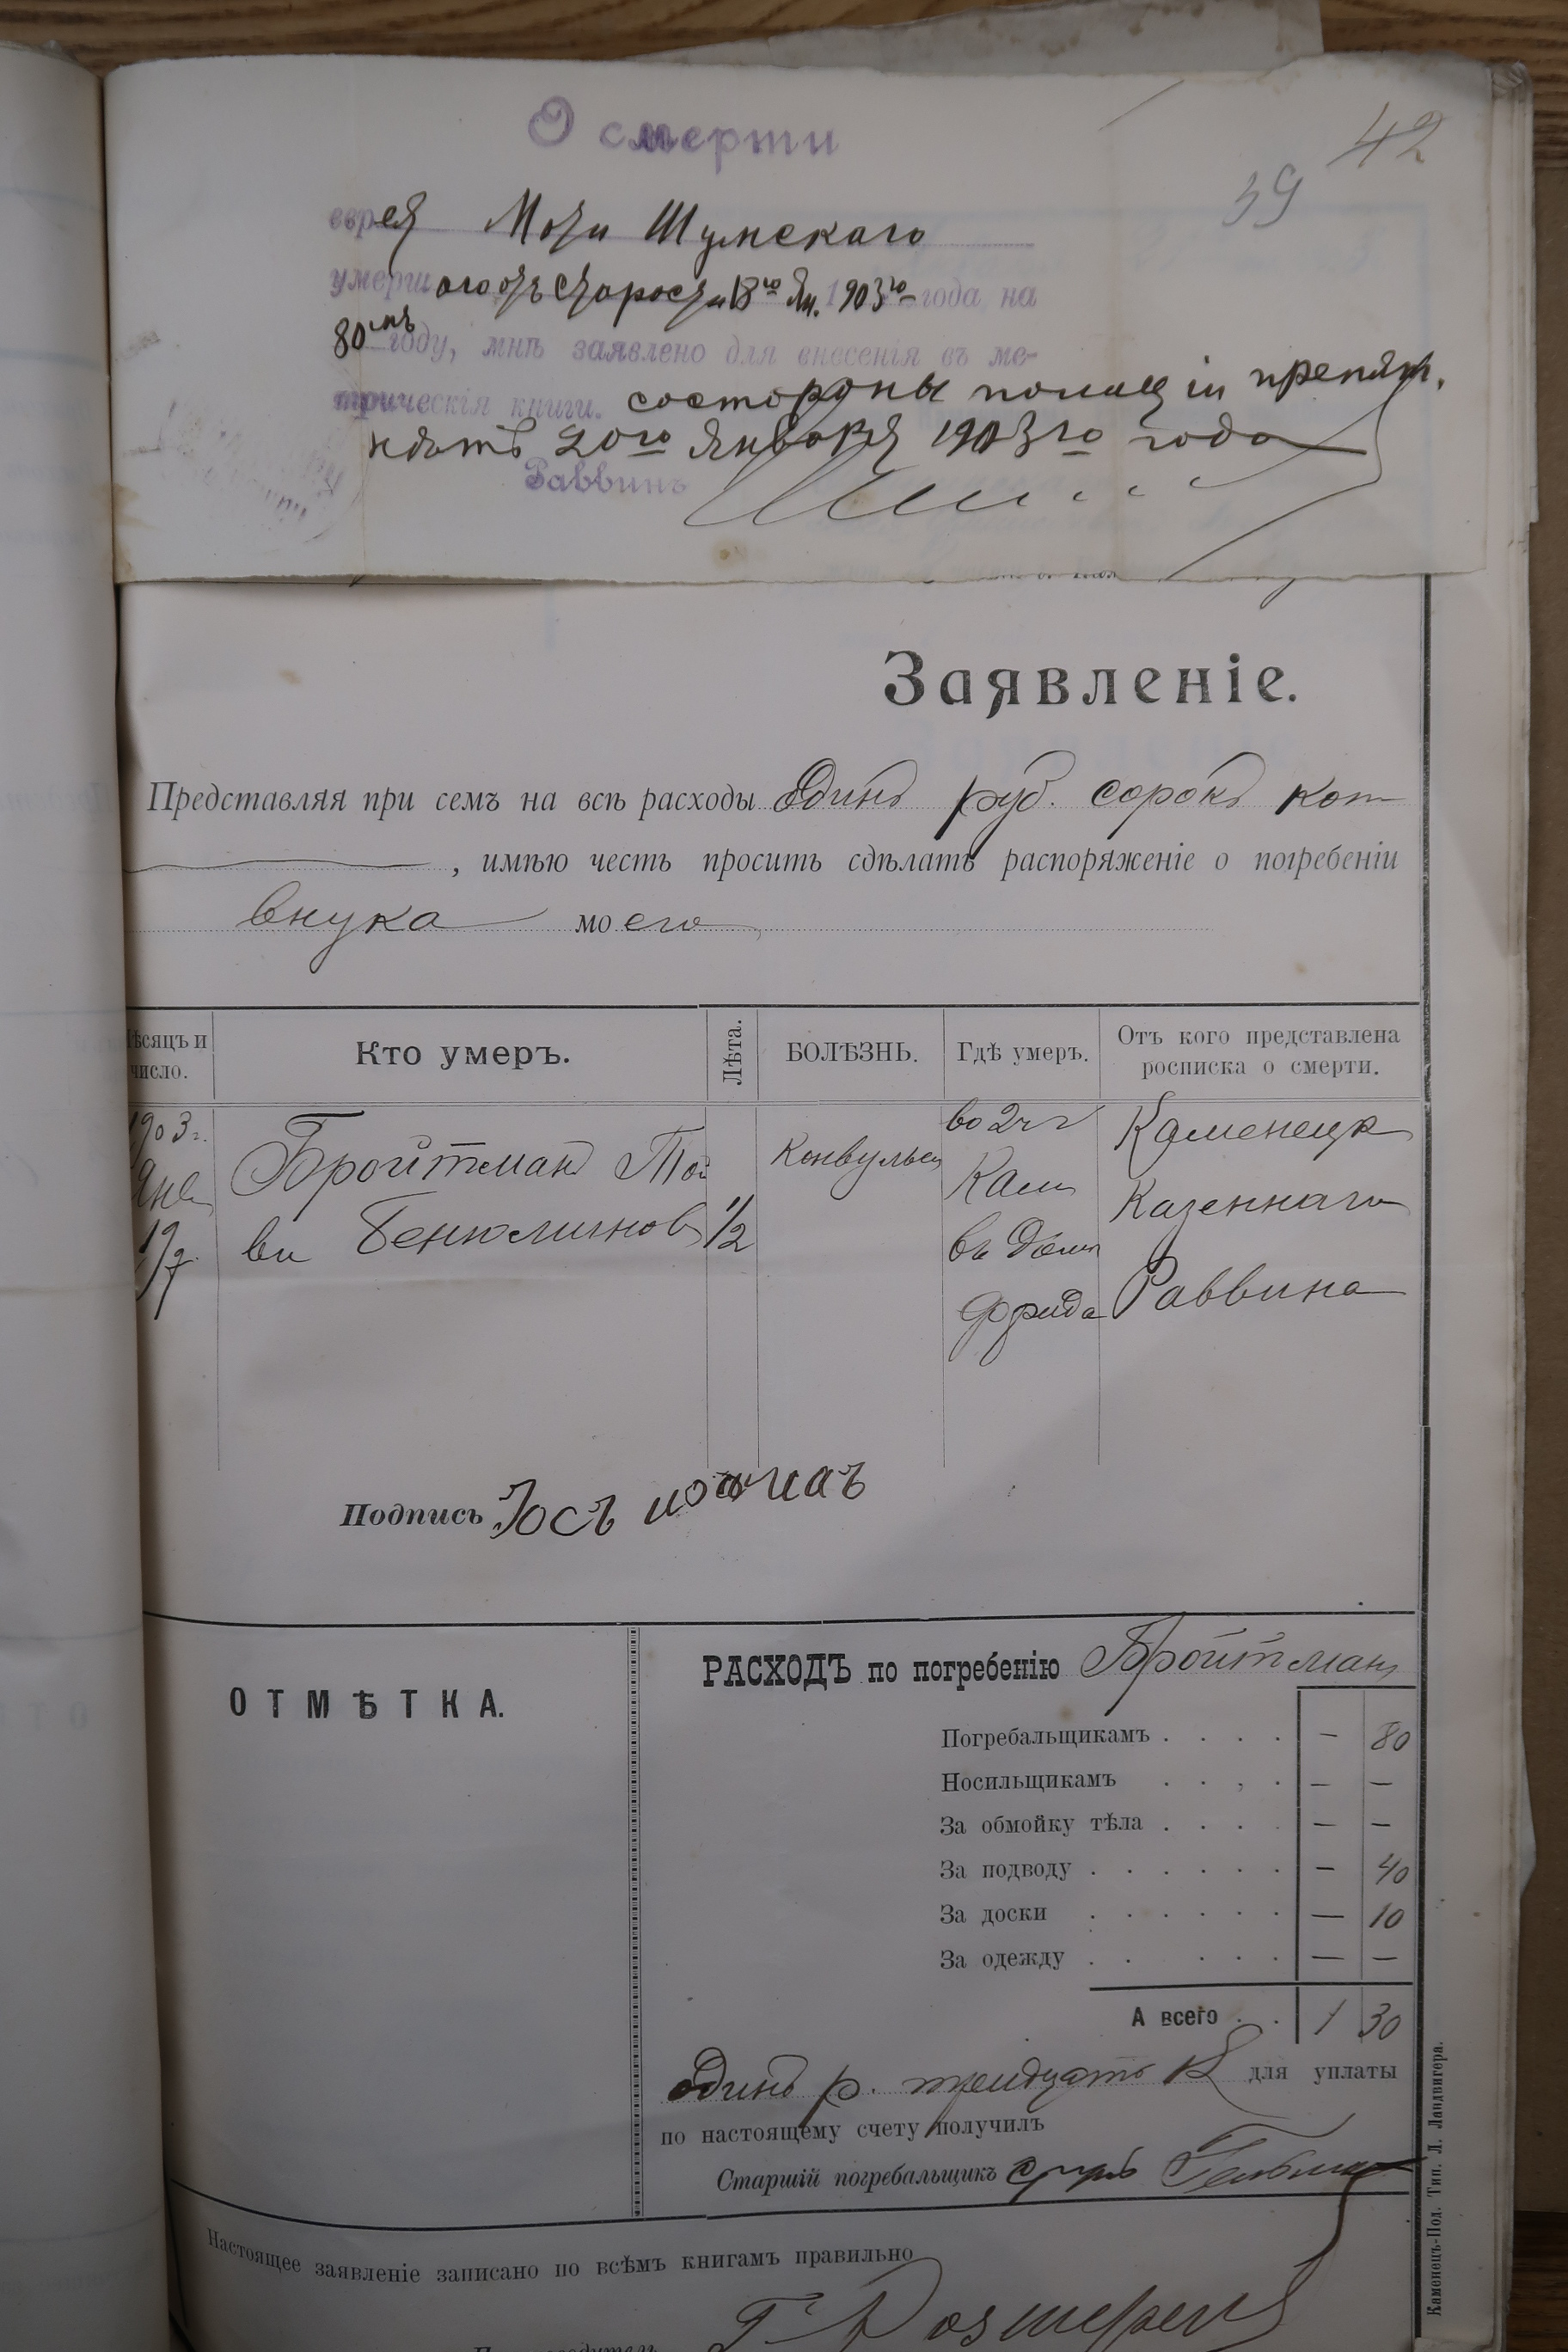 О смерти
42
39
еврея Моти Шумскаго
умершаго отъ старости 18го Ян. 1903го года, на
80мъ году, мнѣ заявлено для внесенія въ ме-
трическія книги. состороны полиціи препят.
нѣтъ 20го Января 1903го года
Раввинъ
Заявленіе.
Представляя при семъ на всѣ расходы Одинъ руб. сорокъ коп
, имѣю честь просить сдѣлать распоряженіе о погребеніи
внука моего
Мѣсяцъ и число.
Кто умеръ.
Лѣта.
БОЛѢЗНЬ.
Гдѣ умеръ.
Отъ кого представлена росписка о смерти.
1903г.
Янв
19/7
Бройтманъ
ви Бенюминов
1/2
Конвульсы
во 2ч г
Кам
въ дом
Фрида
Каменецк
Казеннаго
Раввина
Подпись Іось
ОТМѢТКА.
РАСХОДЪ по погребенію Бройтман
Погребальщикамъ . . . . — 80
Носильщикамъ . . , . — —
За обмойку тѣла . . . . — —
За подводу . . . . . . — 40
За доски . . . . . . — 10
За одежду . . . . . . — —
А всего . . 1 30
Одинъ р. тридцать К для уплаты
по настоящему счету получилъ
Старшій погребальщикъ
Настоящее заявленіе записано по всѣмъ книгамъ правильно
Каменецъ-Под. Тип. Л. Ландвигера.